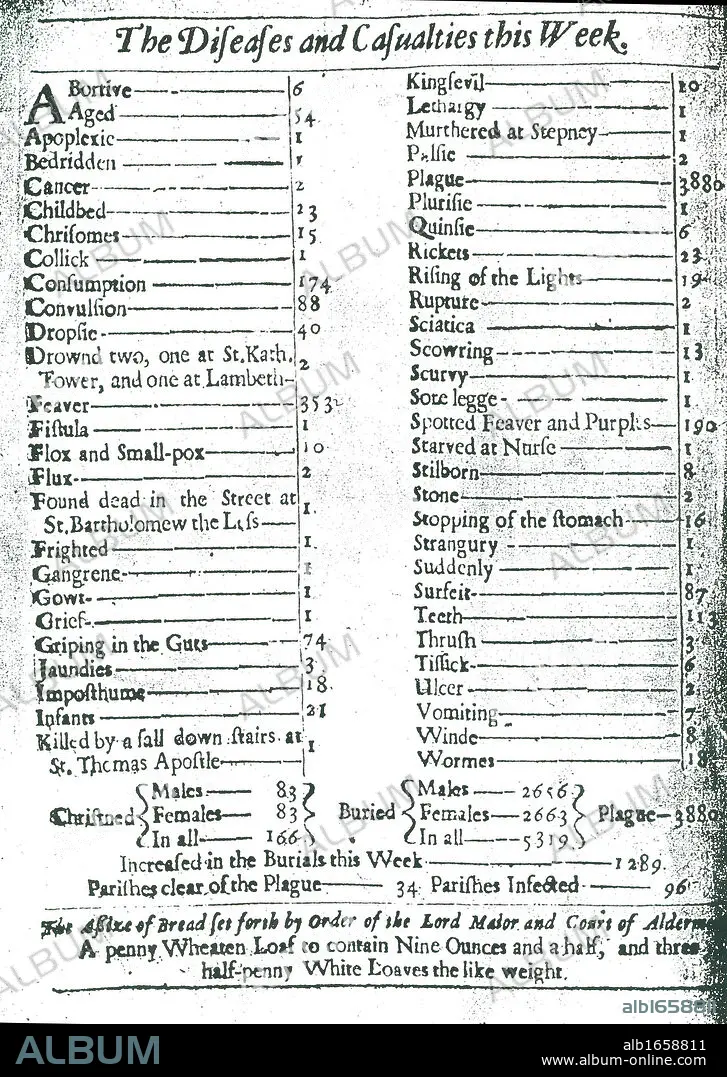 The Diſeaſes and Caſualties this Week.
ABortive 6
Aged 54
Apoplexie 1
Bedridden 1
Cancer 2
Childbed 23
Chriſomes 15
Collick 1
Conſumption 174
Convulſion 88
Dropſie 40
Drownd two, one at St.Kath. 2
Tower, and one at Lambeth
Feaver 353
Fiſtula 1
Flox and Small-pox 10
Flux 2
Found dead in the Street at 1
St.Bartholomew the Leſs
Frighted 1
Gangrene 1
Gowt 1
Grief 1
Griping in the Guts 74
Jaundies 3
Impoſthume 18
Infants 21
Killed by a fall down ſtairs at 1
St. Thomas Apoſtle
Kingſevil 10
Lethargy 1
Murthered at Stepney 1
Palſie 2
Plague 3880
Pluriſie 1
Quinſie 6
Rickets 23
Riſing of the Lights 19
Rupture 2
Sciatica 1
Scowring 13
Scurvy 1
Sore legge 1
Spotted Feaver and Purples 190
Starved at Nurſe 1
Stilborn 8
Stone 2
Stopping of the ſtomach 16
Strangury 1
Suddenly 1
Surfeit 87
Teeth 113
Thruſh 3
Tiſſick 6
Ulcer 2
Vomiting 7
Winde 8
Wormes 18
Chriſtned Males 83 Females 83 In all 166 Buried Males 2656 Females 2663 In all 5319 Plague 3880
Increaſed in the Burials this Week 1289.
Pariſhes clear of the Plague 34 Pariſhes Infected 96
The Aſſize of Bread ſet forth by Order of the Lord Maior and Court of
A penny Wheaten Loaf to contain Nine Ounces and a half, and three
half-penny White Loaves the like weight.
ALBUM
alb1658811
www.album-online.com